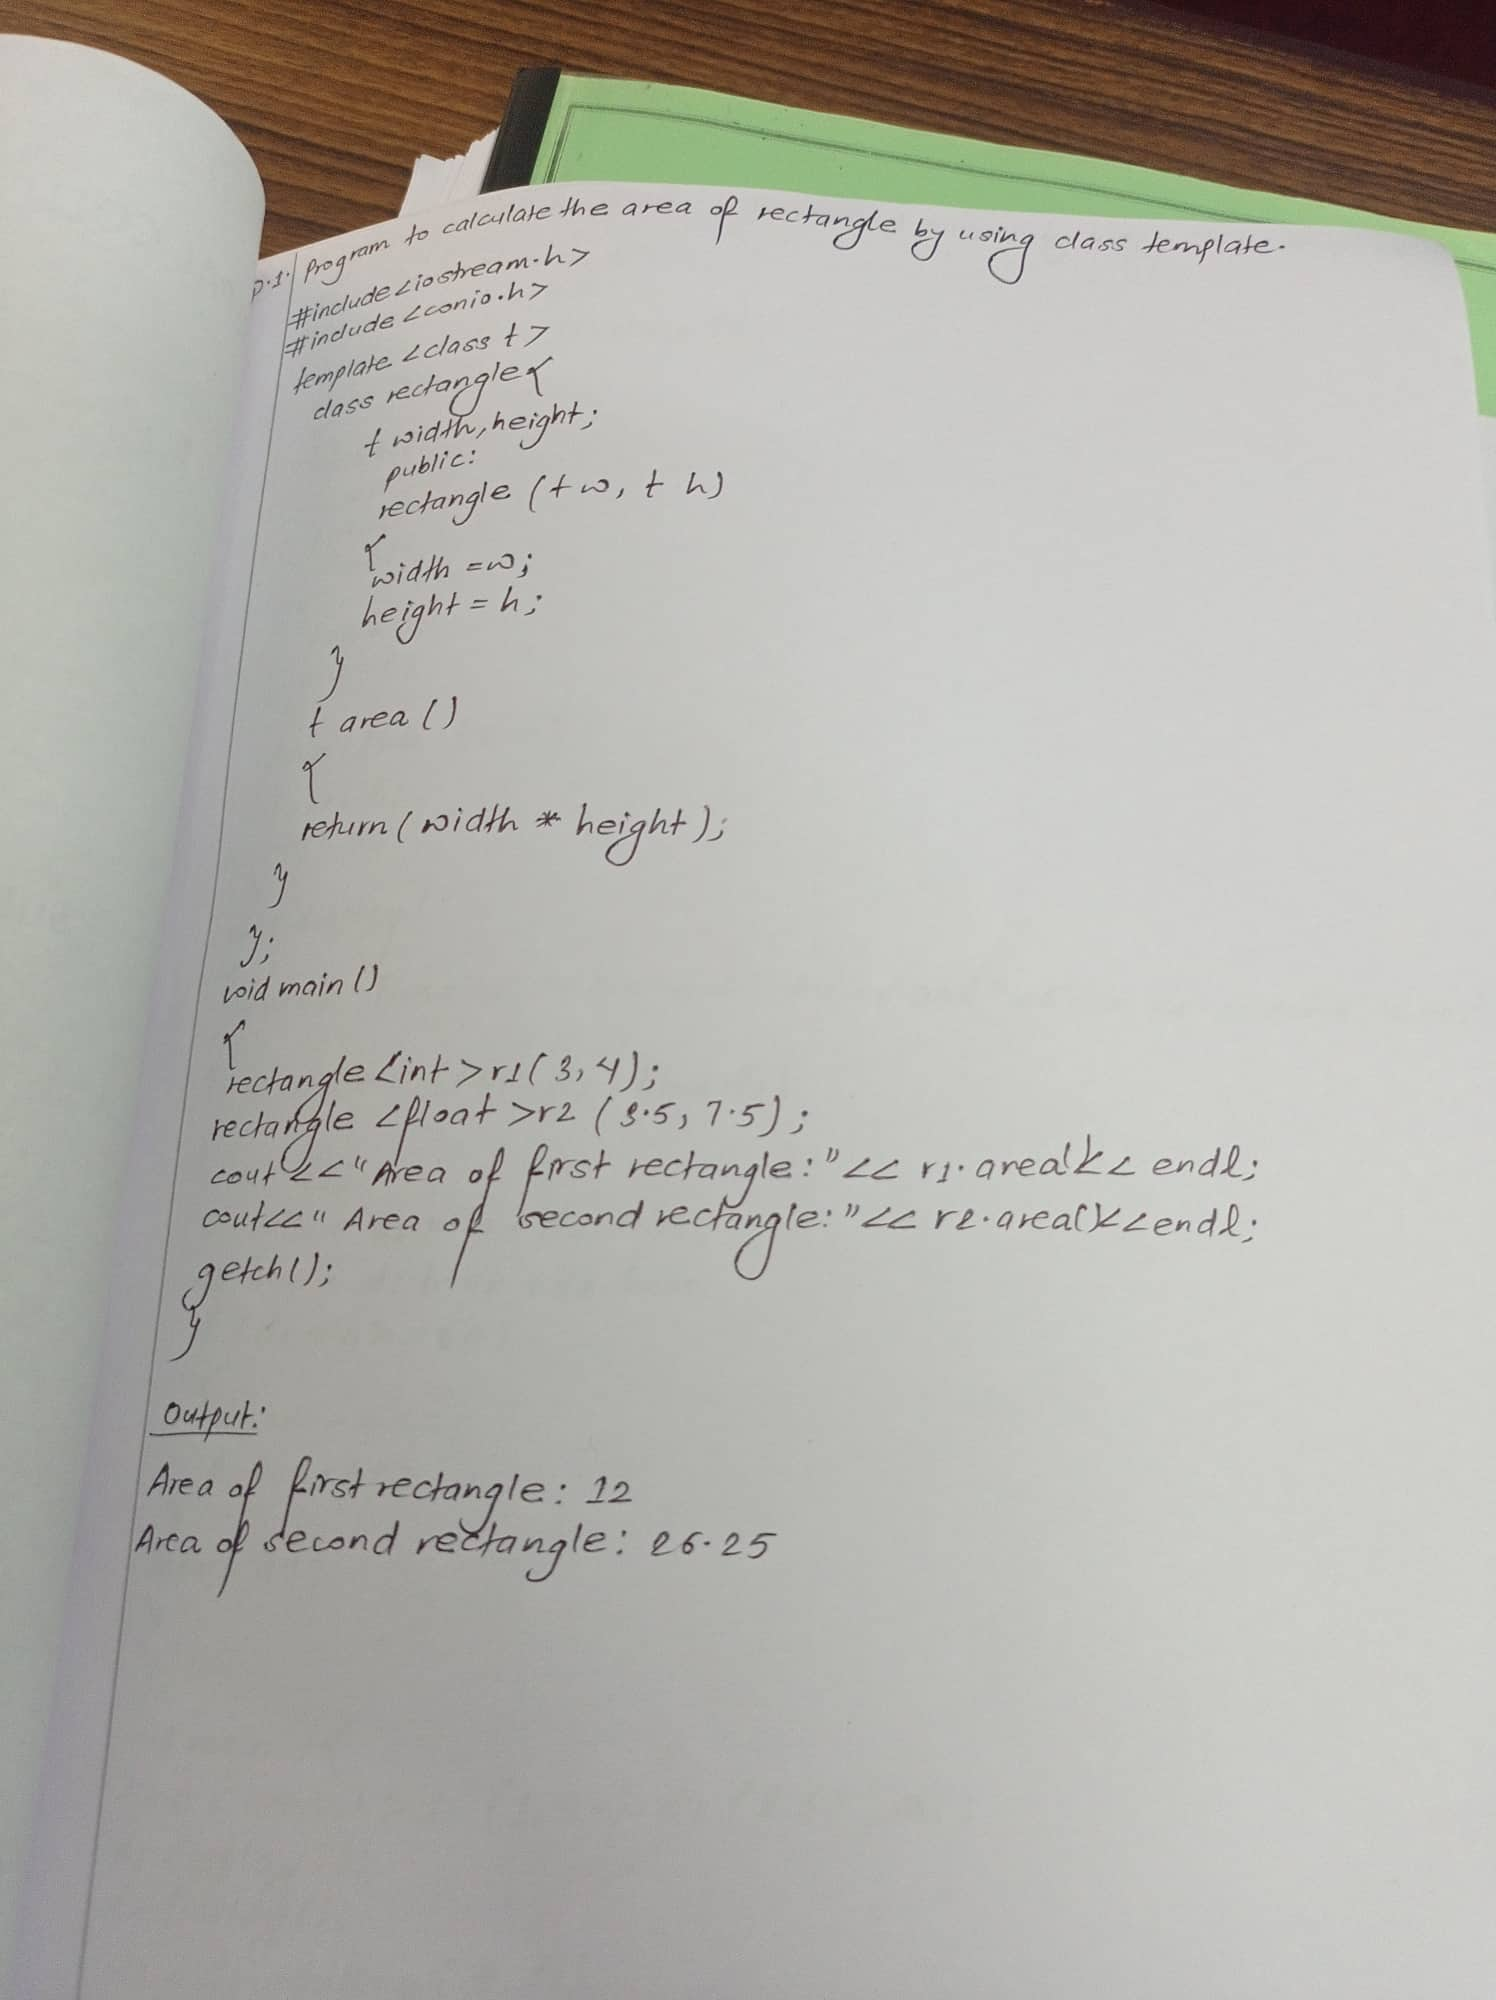 P.1. Program to calculate the area of rectangle by using class template.
#include <iostream.h>
#include <conio.h>
template <class t>
class rectangle{
t width, height;
public:
rectangle (t w, t h)
{
width = w;
height = h;
}
t area ()
{
return (width * height);
}
};
void main ()
{
rectangle <int> r1(3, 4);
rectangle <float> r2 (3.5, 7.5);
cout << "Area of first rectangle:" << r1.area()<< endl;
cout<< " Area of second rectangle:" << r2.area()<<endl;
getch();
}
Output:
Area of first rectangle: 12
Area of second rectangle: 26.25